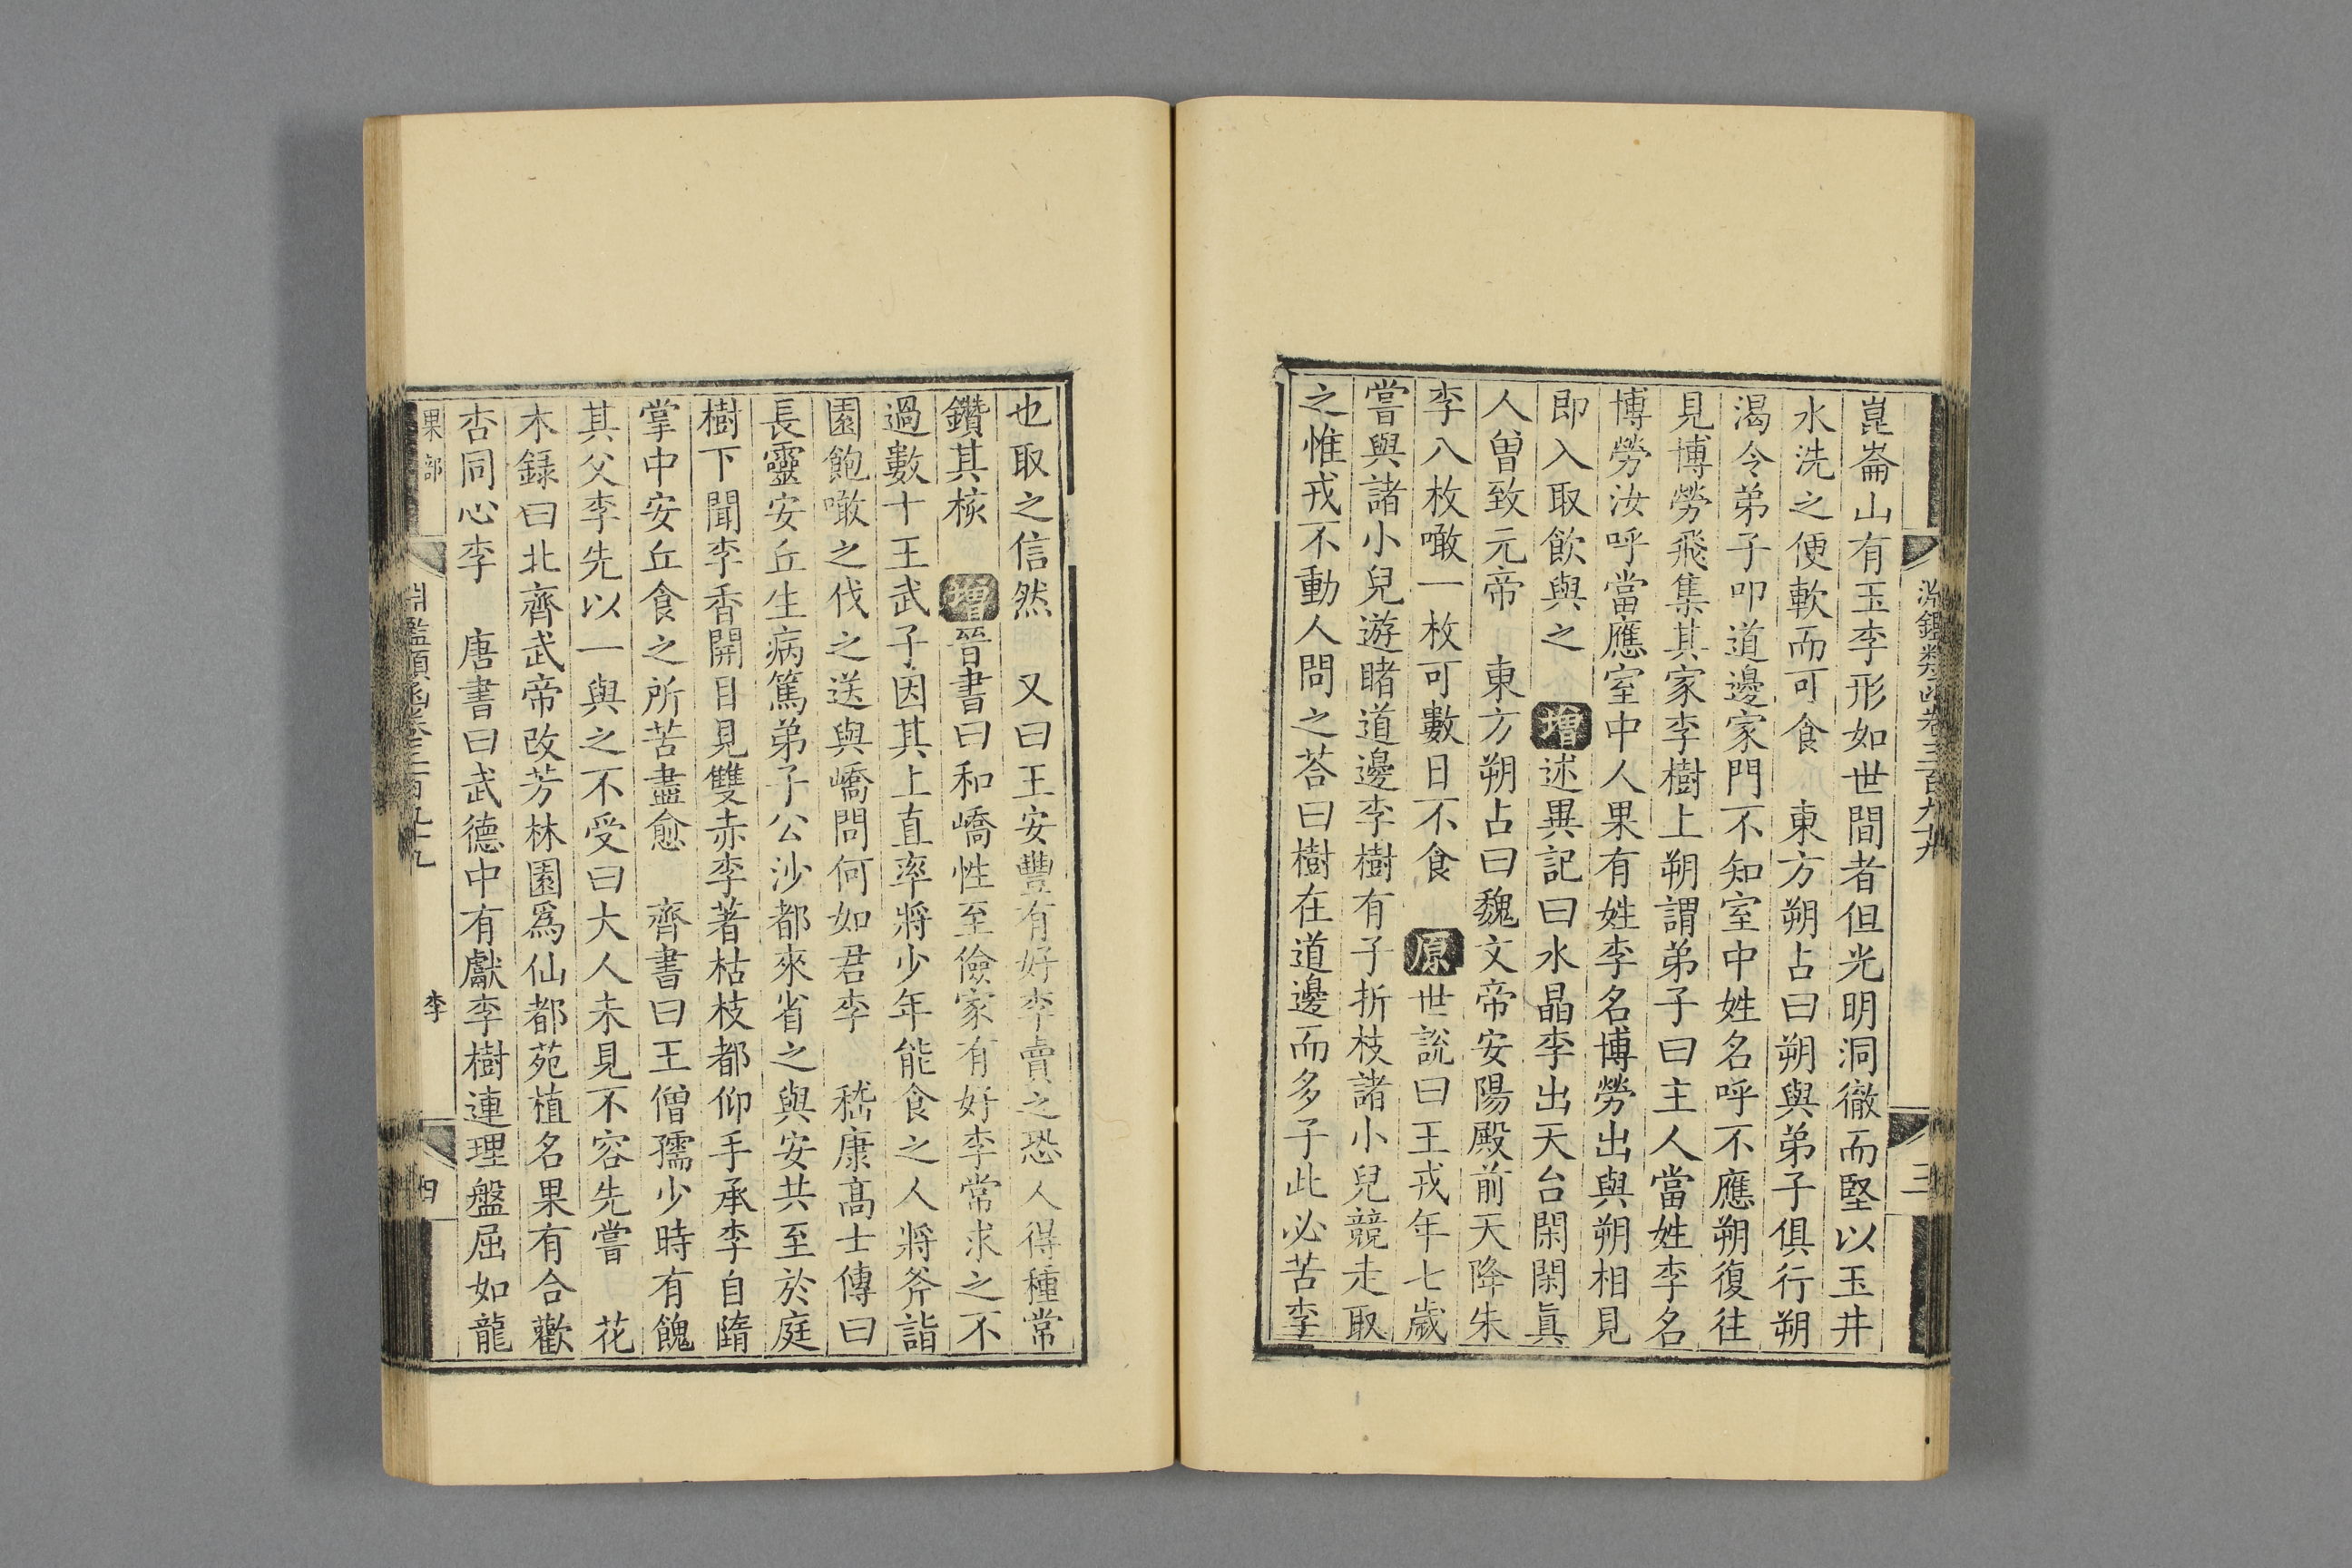 崑崙山有玉李形如世間者但光明洞徹而堅以玉井
水洗之便軟而可食　東方朔占曰朔與弟子俱行朔
渴令弟子叩道邊家門不知室中姓名呼不應朔復往
見博勞飛集其家李樹上朔謂弟子曰主人當姓李名
博勞汝呼當應室中人果有姓李名博勞出與朔相見
即入取飲與之　增述異記曰水晶李出天台閑閑真
人曾致元帝　東方朔占曰魏文帝安陽殿前天降朱
李八枚噉一枚可數日不食　原世說曰王戎年七歲
嘗與諸小兒遊睹道邊李樹有子折枝諸小兒競走取
之惟戎不動人問之荅曰樹在道邊而多子此必苦李
淵鑑類函卷三百九十九
三
也取之信然　又曰王安豐有好李賣之恐人得種常
鑽其核　增晉書曰和嶠性至儉家有好李常求之不
過數十王武子因其上直率將少年能食之人將斧詣
園飽噉之伐之送與嶠問何如君李　嵇康高士傳曰
長靈安丘生病篤弟子公沙都來省之與安共至於庭
樹下聞李香開目見雙赤李著枯枝都仰手承李自隋
掌中安丘食之所苦盡愈　齊書曰王僧孺少時有餽
其父李先以一與之不受曰大人未見不容先嘗　花
木録曰北齊武帝改芳林園爲仙都苑植名果有合歡
杏同心李　唐書曰武德中有獻李樹連理盤屈如龍
果部
淵鑑類函卷三百九十九
李
四